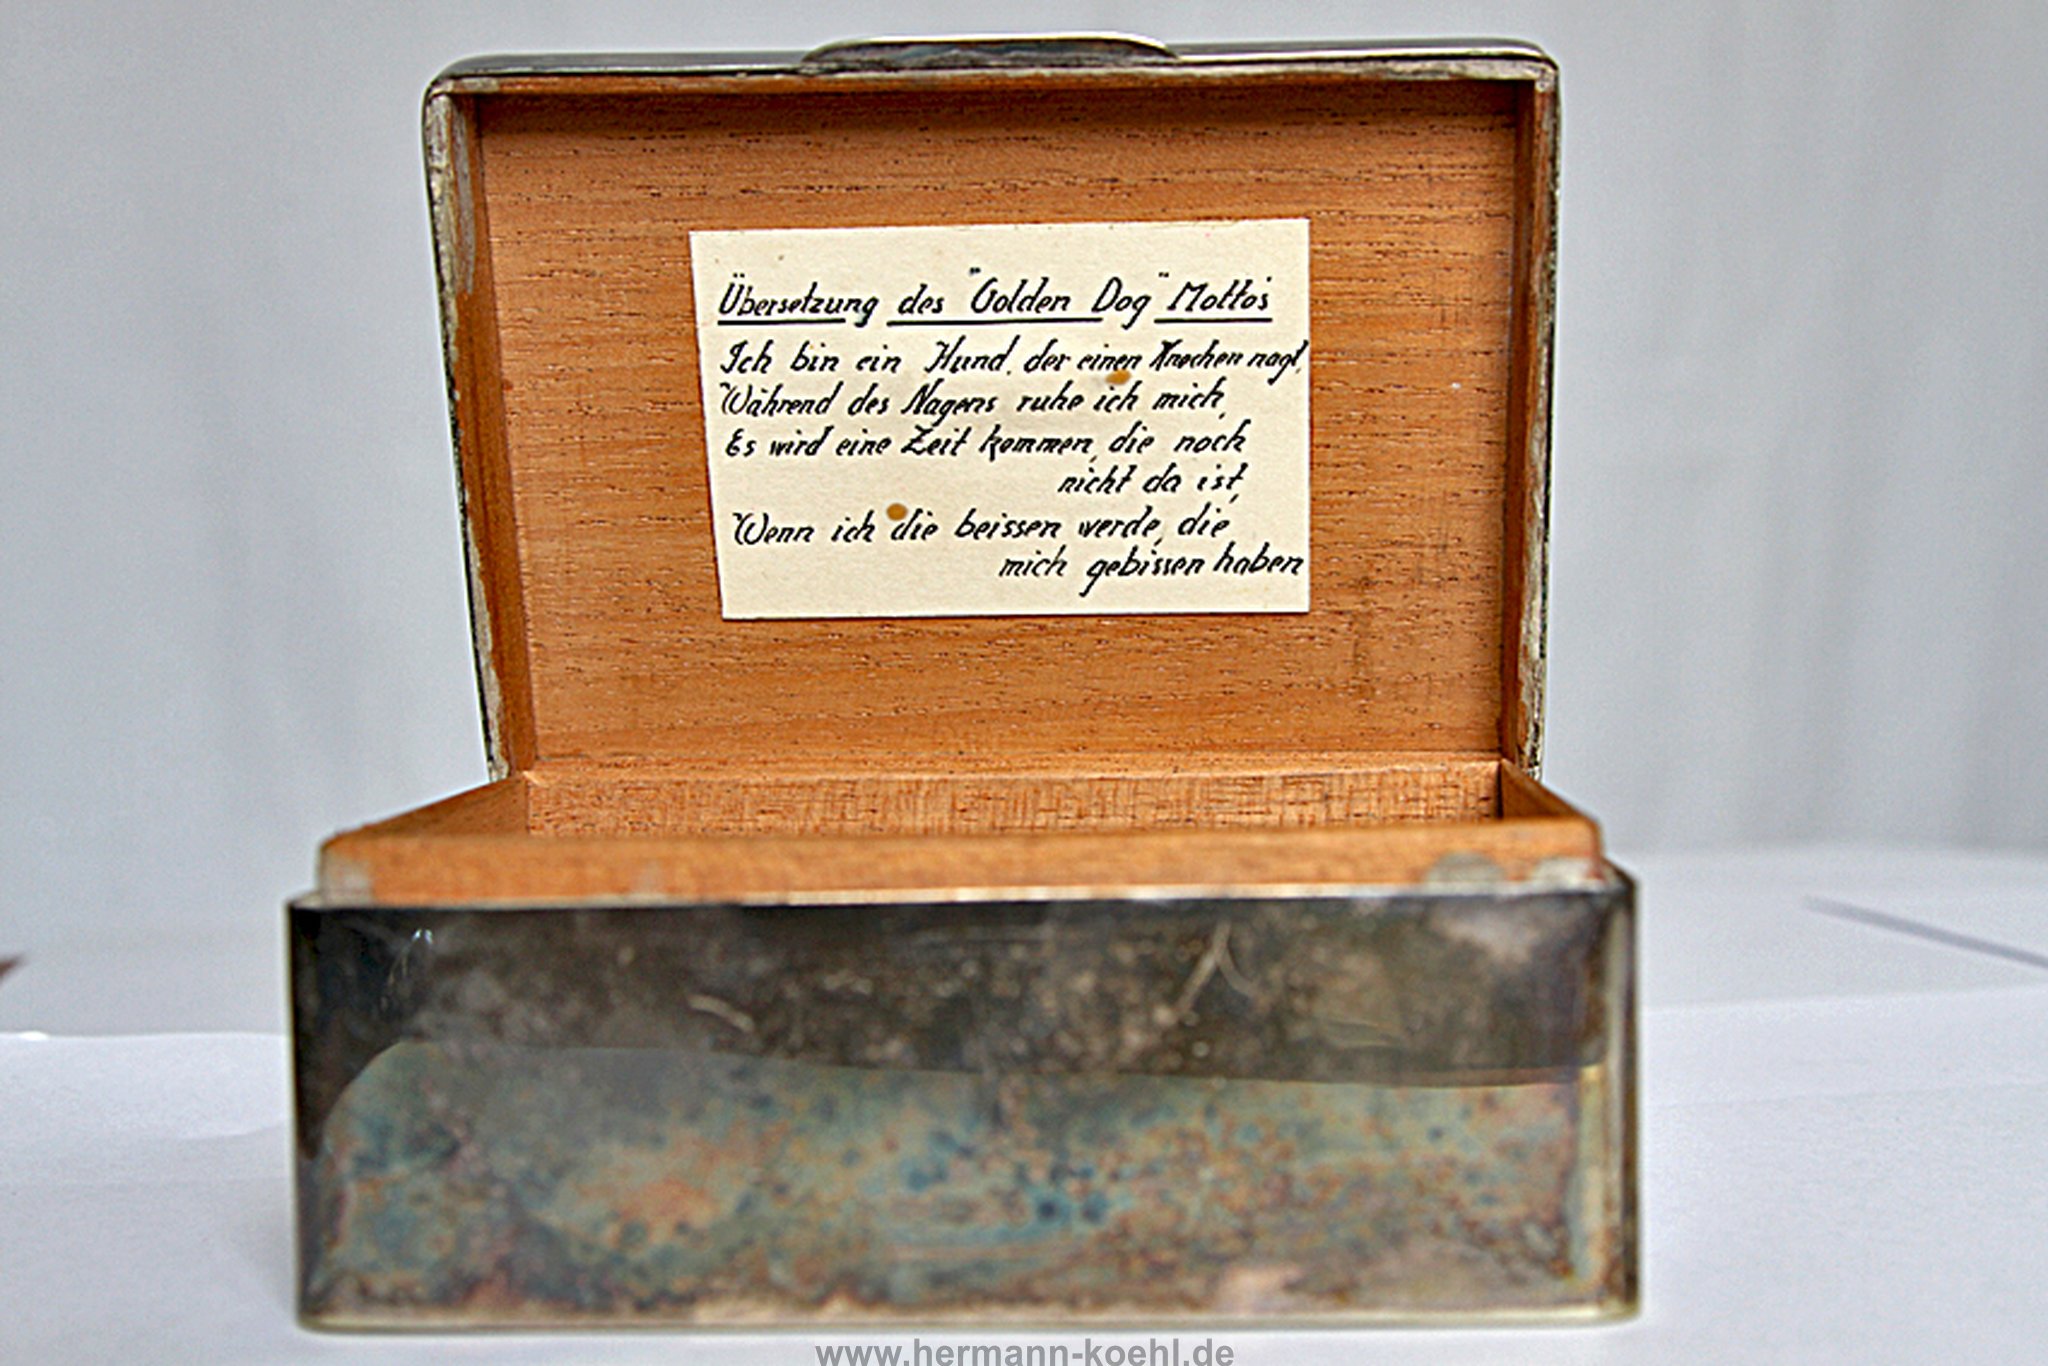 Übersetzung des "Golden Dog" Motto's
Ich bin ein Hund, der einen Knochen nagt,
Während des Nagens ruhe ich mich,
Es wird eine Zeit kommen, die noch
nicht da ist,
Wenn ich die beissen werde, die
mich gebissen haben
www.hermann-koehl.de